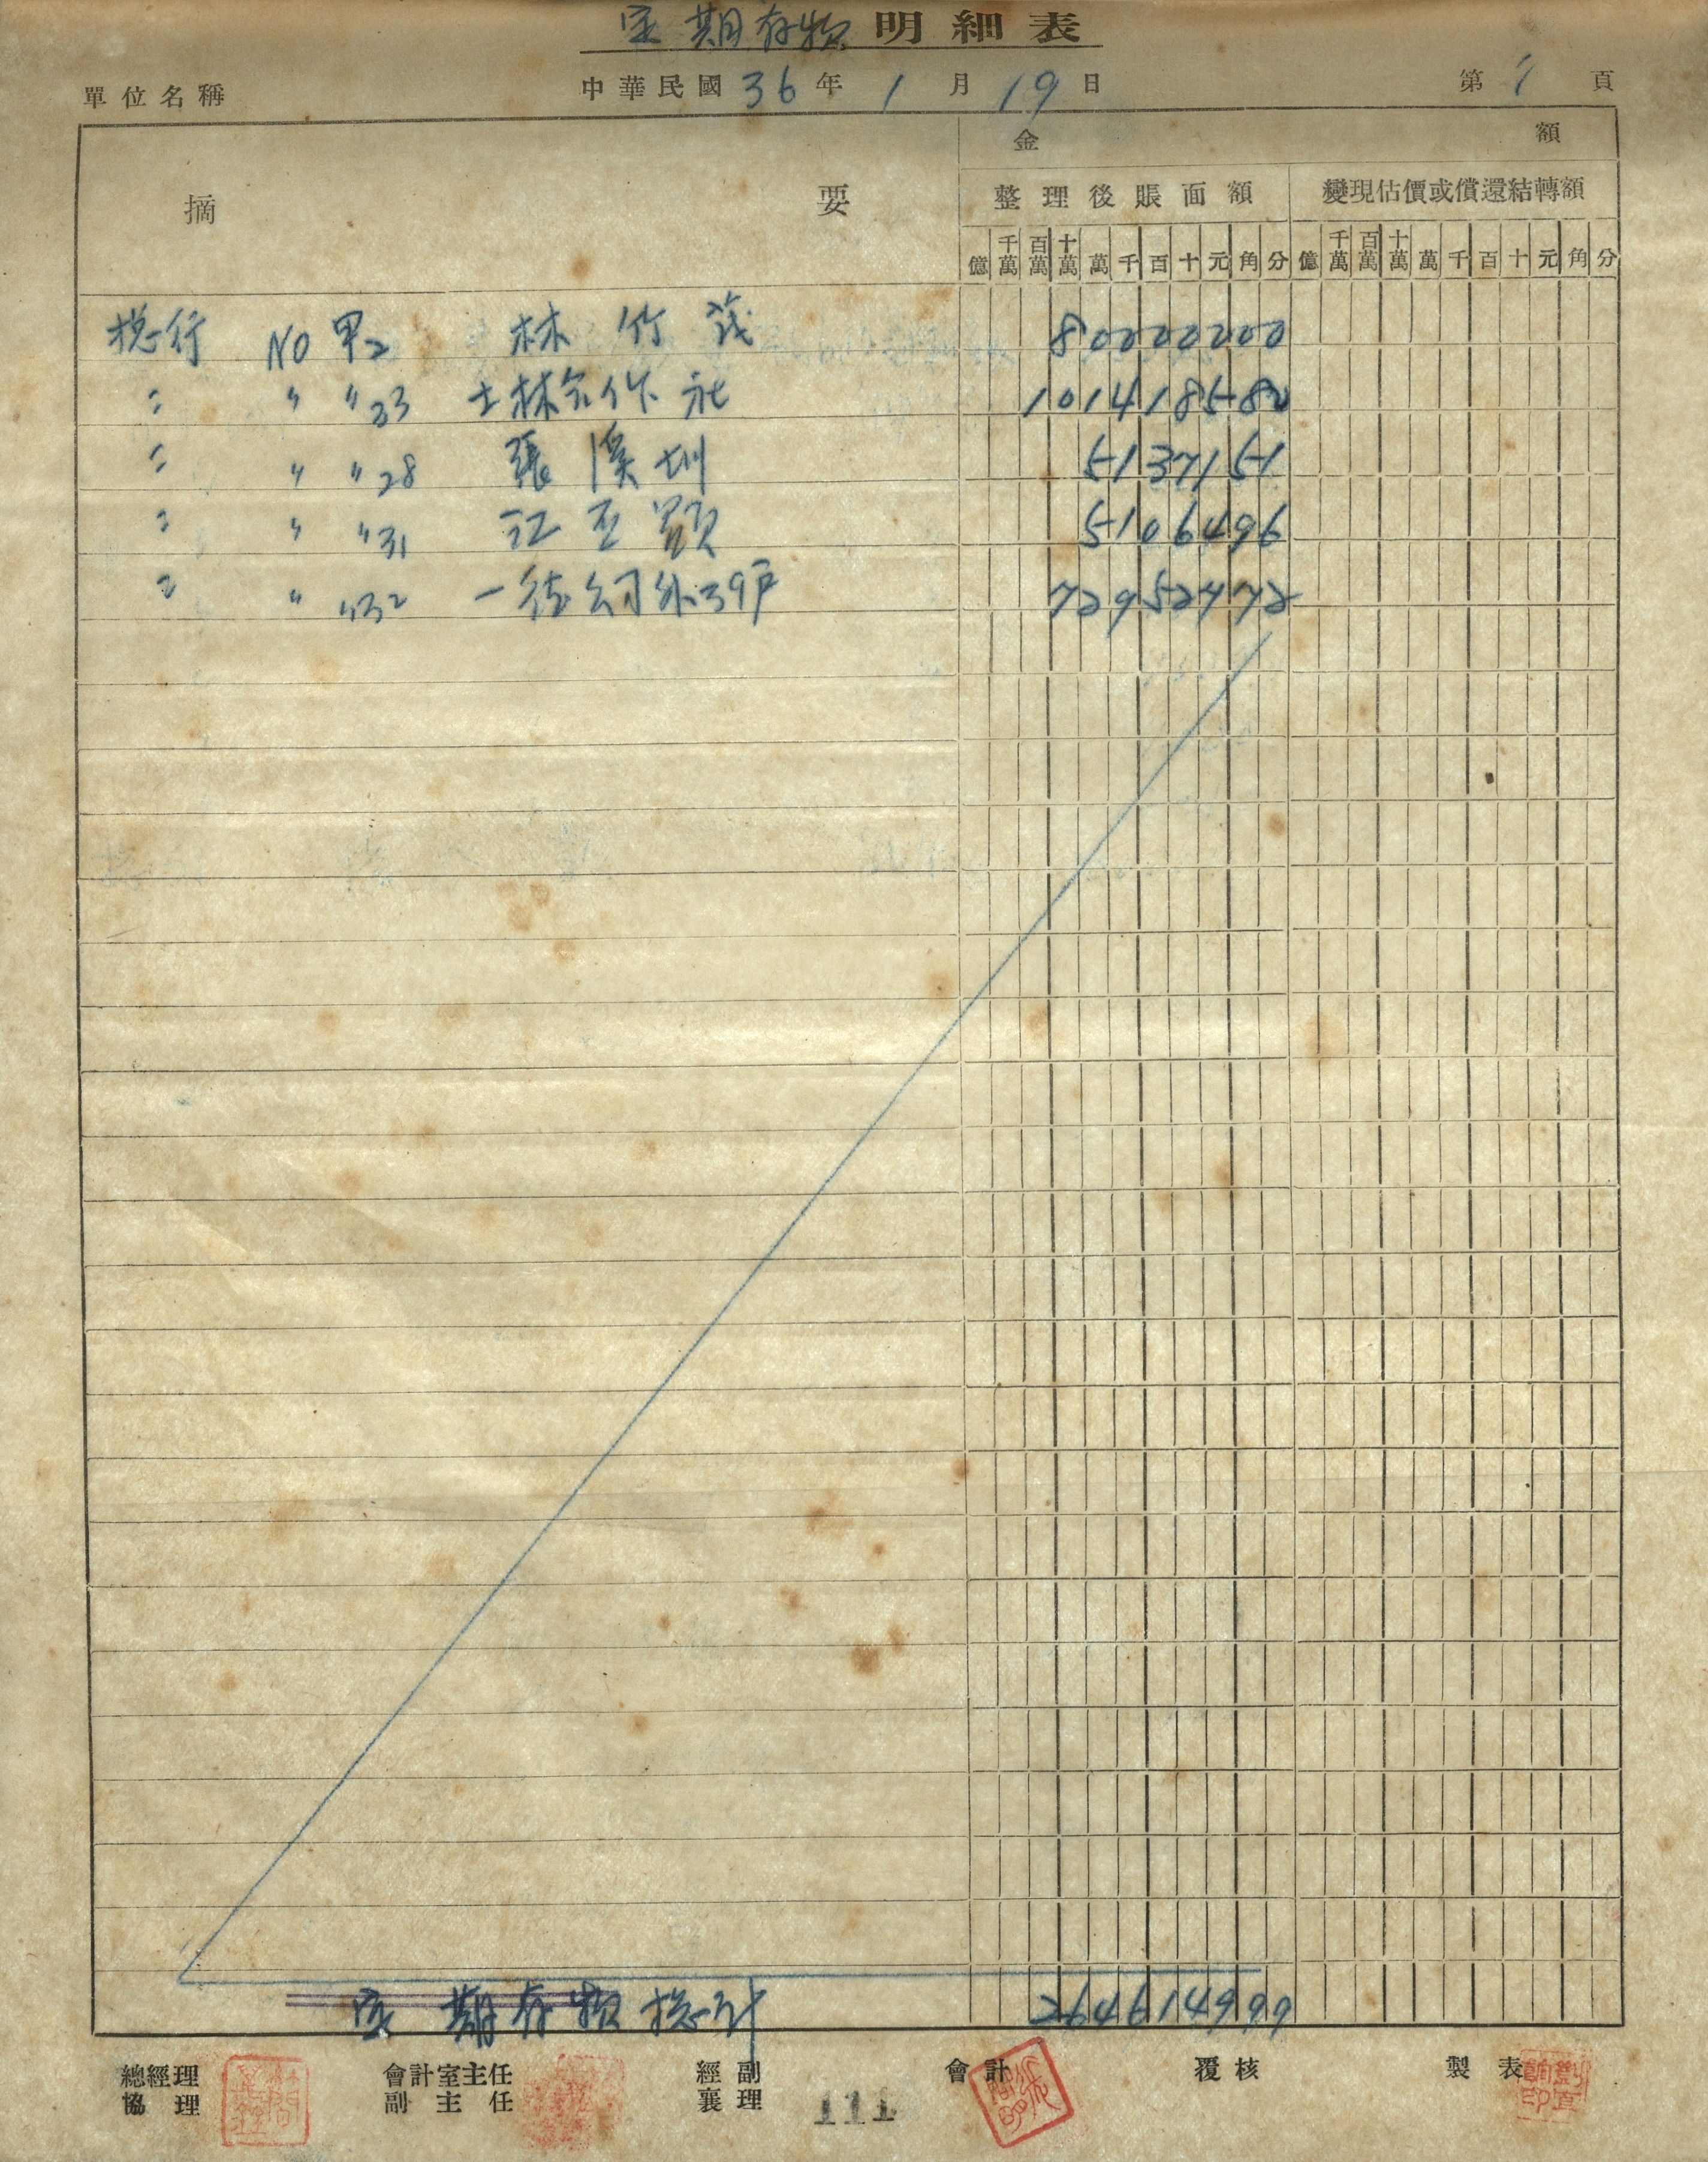 定期存款明細表
單位名稱 中華民國36年1月19日 第1頁
摘要 金額
整理後賬面額 變現估價或償還結轉額
億 千萬 百萬 十萬 萬 千 百 十 元 角 分 億 千萬 百萬 十萬 萬 千 百 十 元 角 分
總行 NO 甲2 林竹茂 80000000
〃 〃 〃33 士林合作社 101418580
〃 〃 〃28 張溪圳 5137151
〃 〃 〃31 江 5106496
〃 〃 〃32 一德公司外39戶 72952772
定期存款總計 264614999
總經理 會計室主任 經副 會計 覆核 製表
協理 副主任 襄理
111